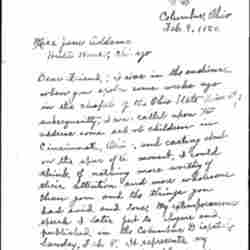 Columbus, Ohio
Feb. 9,
Miss Jane Addams
Hull House, Chicago
Dear Friend; I was in the audience
when you spoke some weeks ago
in the chapel of the Ohio State
subsequently, I was called upon to
address some school children in
Cincinnati, Ohio; and casting about
on the spur of the moment, I could
think of nothing more worthy of
their attention and more wholesome
than you and the things you
had said and done. My extemporaneous
speech I later put to and
published in the Columbus Dispatch;
Sunday, Feb. 8. It represents my